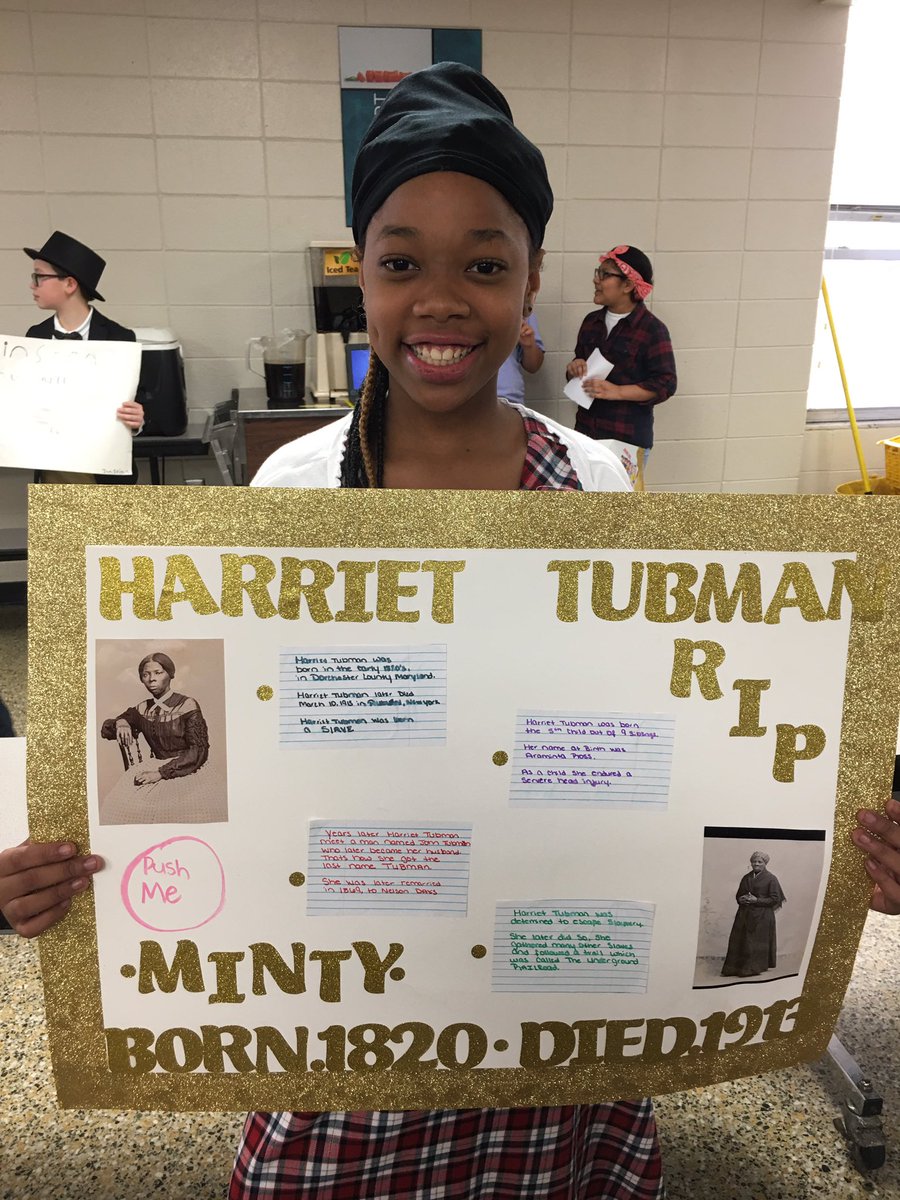 Iced Tea
HARRIET TUBMAN
RIP
Harriet Tubman was
born in the early 1820's,
in Dorchester County Maryland.
Harriet Tubman later Died
March 10, 1913 in New York
Harriet Tubman was born
a SLAVE
Harriet Tubman was born
the 5th child out of 9 siblings.
Her name at Birth was
Araminta Ross.
As a child she endured a
servere head injury.
Push
Me
Years later Harriet Tubman
meet a man named John Tubman
who later became her husband.
Thats how she got the
last name TUBMAN
She was later remarried
in 1869, to Nelson Davis
Harriet Tubman was
determined to escape Slavery.
She later did so, she
gathered many other slaves
and followed a trail which
was called The Underground
RAILRoad.
·MINTY·
BORN.1820·DIED.1913